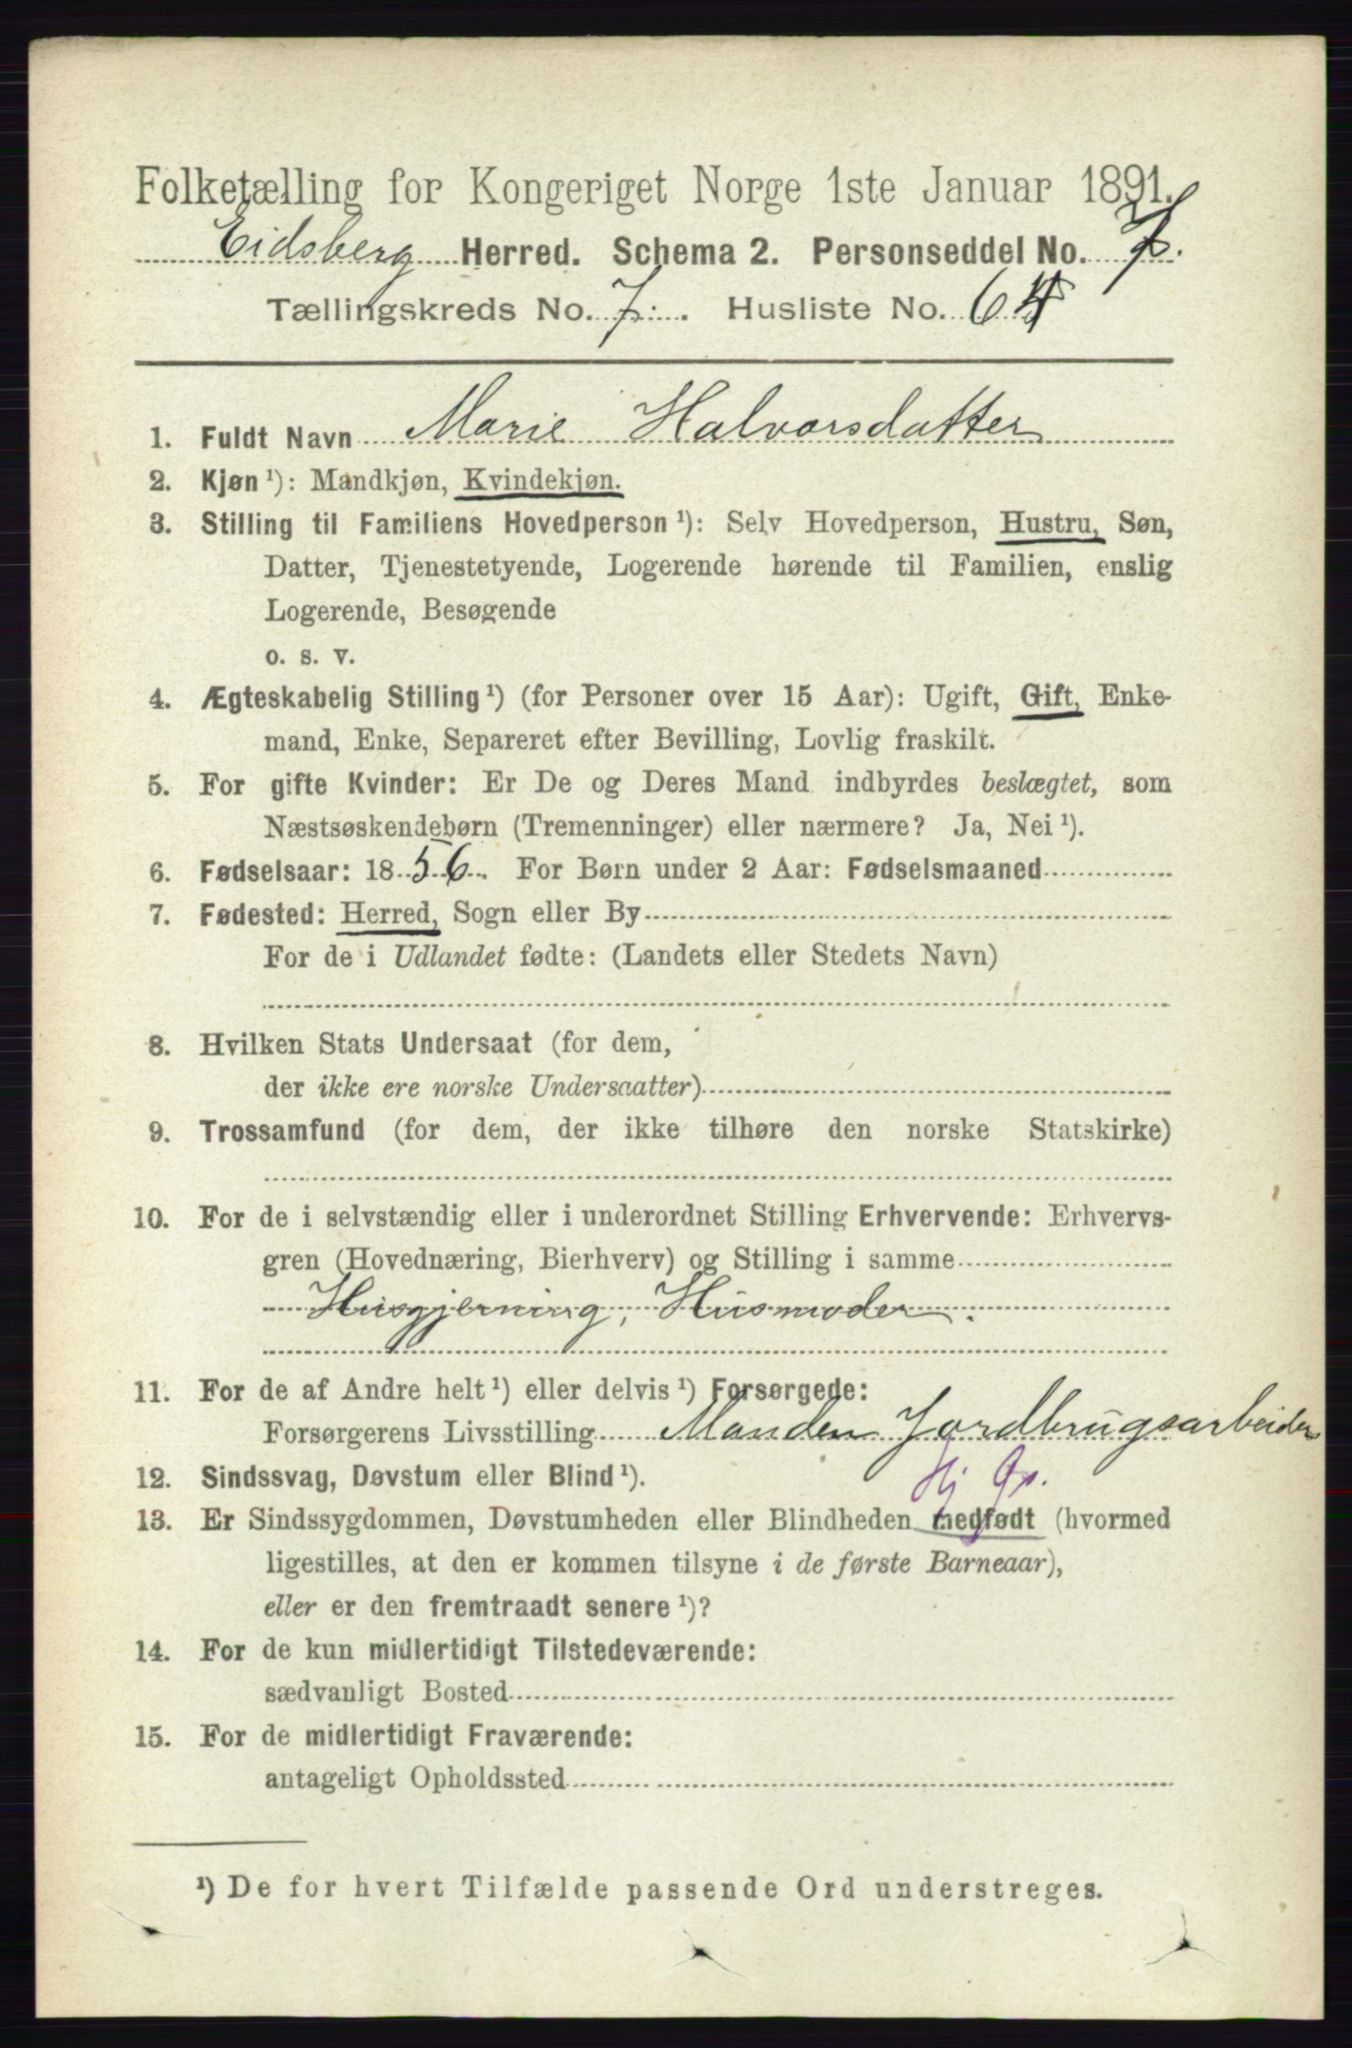 Folketælling for Kongeriget Norge 1ste Januar 1891.
Eidsberg Herred. Schema 2. Personseddel No.
Tællingskreds No. 7. Husliste No. 64
1. Fuldt Navn Marie Halvorsdatter
2. Kjøn ¹): Mandkjøn, Kvindekjøn.
3. Stilling til Familiens Hovedperson ¹): Selv Hovedperson, Hustru, Søn,
Datter, Tjenestetyende, Logerende hørende til Familien, enslig
Logerende, Besøgende
o. s. v.
4. Ægteskabelig Stilling ¹) (for Personer over 15 Aar): Ugift, Gift, Enke-
mand, Enke, Separeret efter Bevilling, Lovlig fraskilt.
5. For gifte Kvinder: Er De og Deres Mand indbyrdes beslægtet, som
Næstsøskendebørn (Tremenninger) eller nærmere? Ja, Nei ¹).
6. Fødselsaar: 1856. For Børn under 2 Aar: Fødselsmaaned
7. Fødested: Herred, Sogn eller By
For de i Udlandet fødte: (Landets eller Stedets Navn)
8. Hvilken Stats Undersaat (for dem,
der ikke ere norske Undersaatter)
9. Trossamfund (for dem, der ikke tilhøre den norske Statskirke)
10. For de i selvstændig eller i underordnet Stilling Erhvervende: Erhvervs-
gren (Hovednæring, Bierhverv) og Stilling i samme
Husgjerning, Husmoder.
11. For de af Andre helt ¹) eller delvis ¹) Forsørgede:
Forsørgerens Livsstilling Manden Jordbrugsarbeider
12. Sindssvag, Døvstum eller Blind ¹).
13. Er Sindssygdommen, Døvstumheden eller Blindheden medfødt (hvormed
ligestilles, at den er kommen tilsyne i de første Barneaar),
eller er den fremtraadt senere ¹)?
14. For de kun midlertidigt Tilstedeværende:
sædvanligt Bosted
15. For de midlertidigt Fraværende:
antageligt Opholdssted
¹) De for hvert Tilfælde passende Ord understreges.